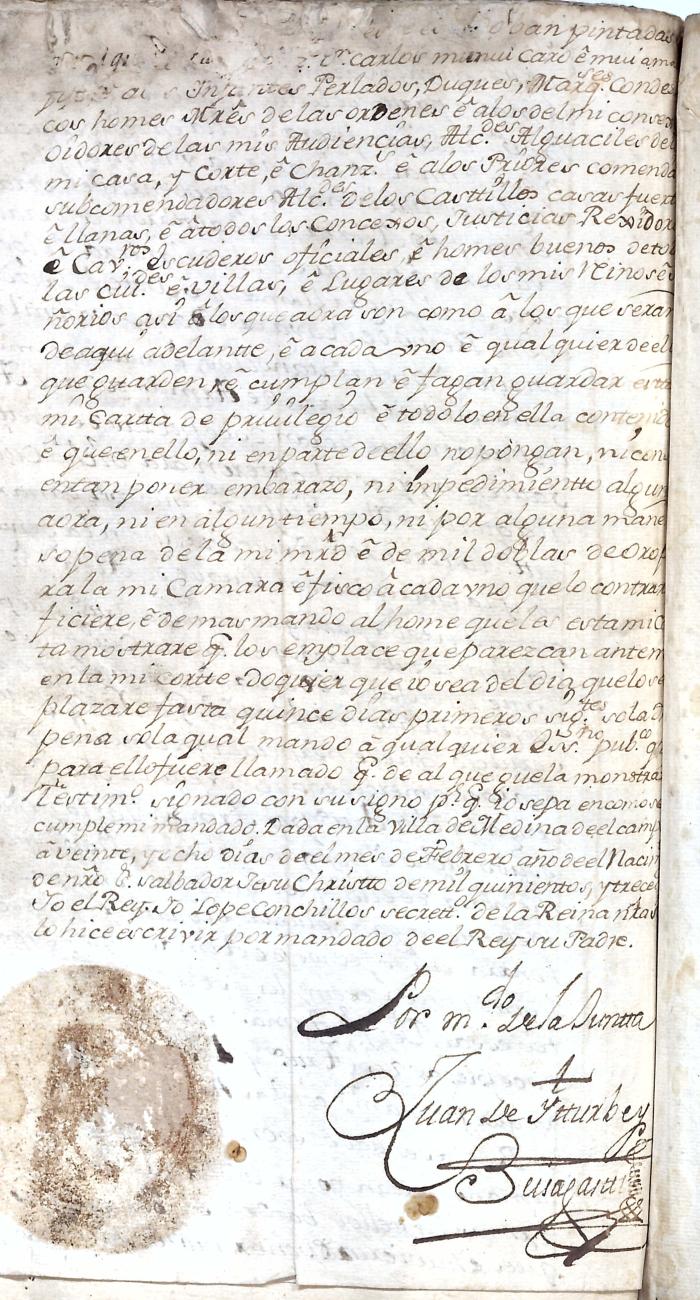 van pintadas
carlos mi mui caro ê mui ama
Infantes Perlados, Duques, Marq.ses Condes
cos homes Mrês de las ordenes ê alos del mi conse
oidores de las mis Audiencias, Alc.des Alguaciles de l
mi casa, y Corte, ê Chanz.s ê a los Priores comenda
subcomendadores Alc.des de los Casttillos casas fuert
ê llanas, ê â todos los Concexos, Justicias Rexidor
ê Cav.ros escuderos oficiales, ê homes buenos de to
las Ciu.des ê villas, ê Lugares de los mis Reinos ê s
ñorios asi â los que aora son como â los que seran
de aqui adelantte, ê a cada vno ê qualquier de el
que guarden ê cumplan ê fagan guardar estta
mi Cartta de privilegio ê todo lo en ella contenid
ê que en ello, ni en parte de ello no pongan, ni con
entan poner embarazo, ni impedimientto algun
aora, ni en algun tiempo, ni por alguna mane
so pena de la mi mrd ê de mil doblas de oro p
ra la mi Camara ê fisco â cada vno que lo contrar
ficiere, ê demas mando al home que les esta mi C
ta mostrare q. los emplace que parezcan ante m
en la mi cortte doquier que io sea del dia que los e
plazare fasta quince dias primeros sig.tes so la d
pena so la qual mando â qualquier Ess.no pub.co q
para ello fuere llamado q. de al que gela monstra
Testim.o signado con su signo p.r q. io sepa en como se
cumple mi mandado. Dada en la villa de Medina de el camp
â veinte, y ocho dias de el mes de Febrero año de el Nacim
de nro S. salbador Jesu Christto de mil quinientos, y trece
Yo el Rey. Yo Lope Conchillos secrett.o de la Reina nras
lo hice escrivir por mandado de el Rey su Padre.
Por m.do de la Juntta
Juan de Ytturbe y
Buisagasti